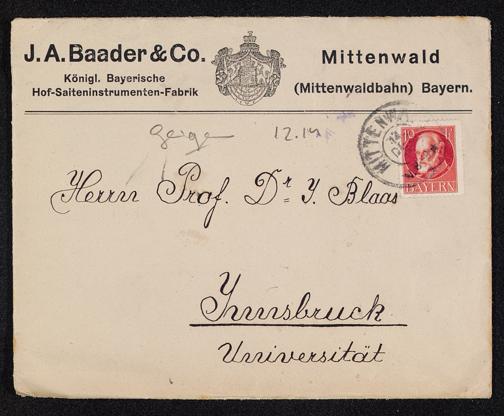 J. A. Baader & Co.
Königl. Bayerische
Hof-Saiteninstrumenten-Fabrik
Mittenwald
(Mittenwaldbahn) Bayern.
Geigen 12.14
MITTENWA
10
BAYERN
Herrn Prof. Dr J. Blaas
Innsbruck
Universität